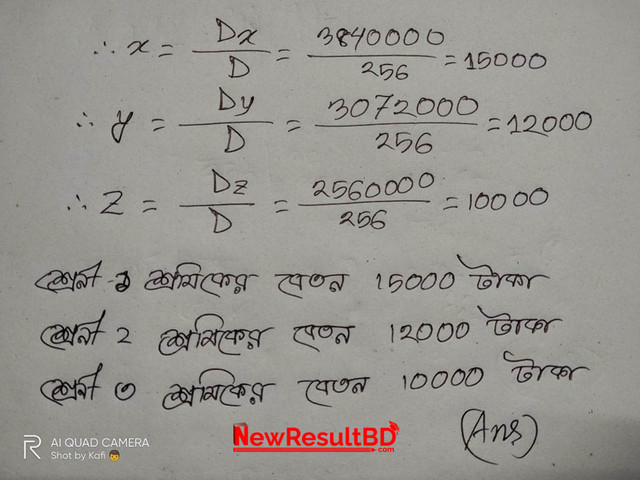 ∴ x = Dx/D = 3840000/256 = 15000
∴ y = Dy/D = 3072000/256 = 12000
∴ Z = Dz/D = 2560000/256 = 10000
শ্রেনী-১ শ্রমিকের বেতন 15000 টাকা
শ্রেনী ২ শ্রমিকের বেতন 12000 টাকা
শ্রেনী ৩ শ্রমিকের বেতন 10000 টাকা
(Ans)
R AI QUAD CAMERA
Shot by Kafi 👦
NewResultBD.com